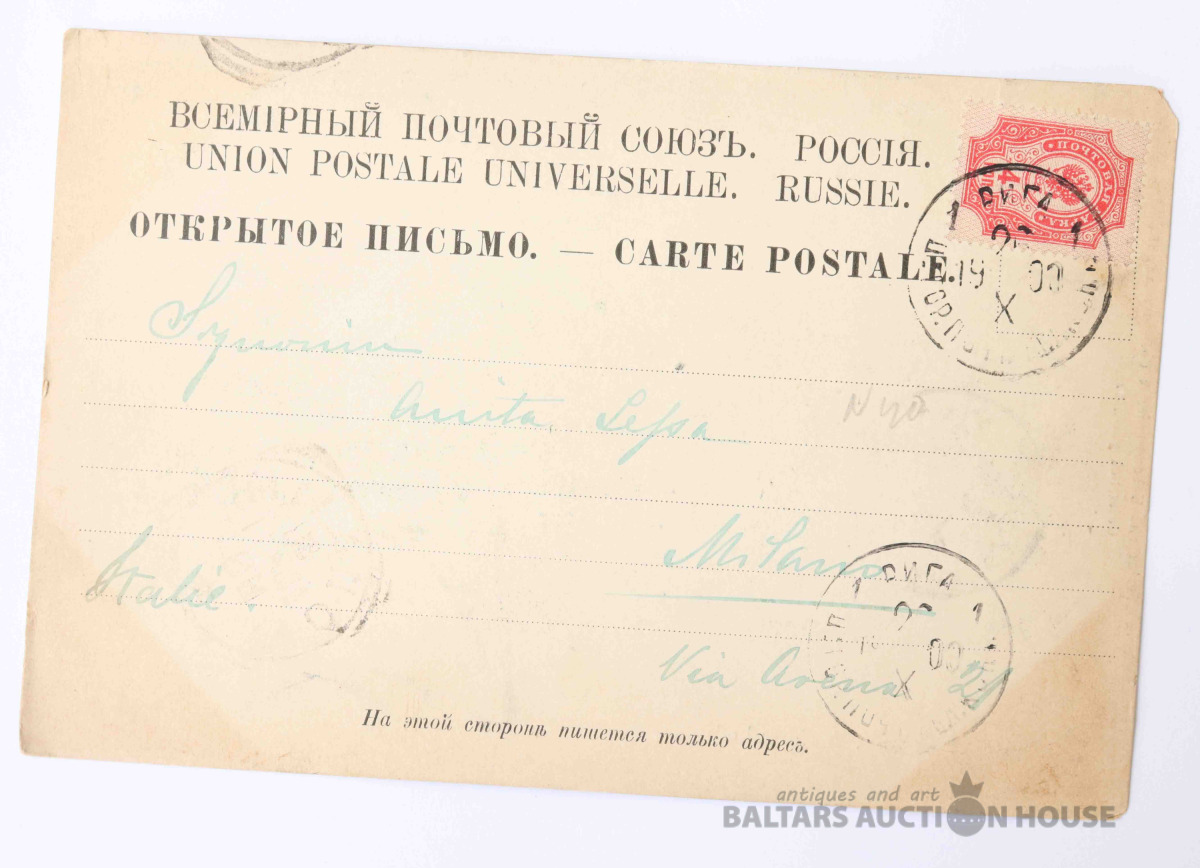 ВСЕМІРНЫЙ ПОЧТОВЫЙ СОЮЗЪ. РОССІЯ.
UNION POSTALE UNIVERSELLE. RUSSIE.
ОТКРЫТОЕ ПИСЬМО. — CARTE POSTALE.
ПОЧТОВАЯ МАРКА
4
1 РИГА 1
19 00
X
Anita
Milano
Italie.
1 РИГА 1
00
X
Via Arena 21
На этой сторонѣ пишется только адресъ.
antiques and art
BALTARS AUCTION HOUSE